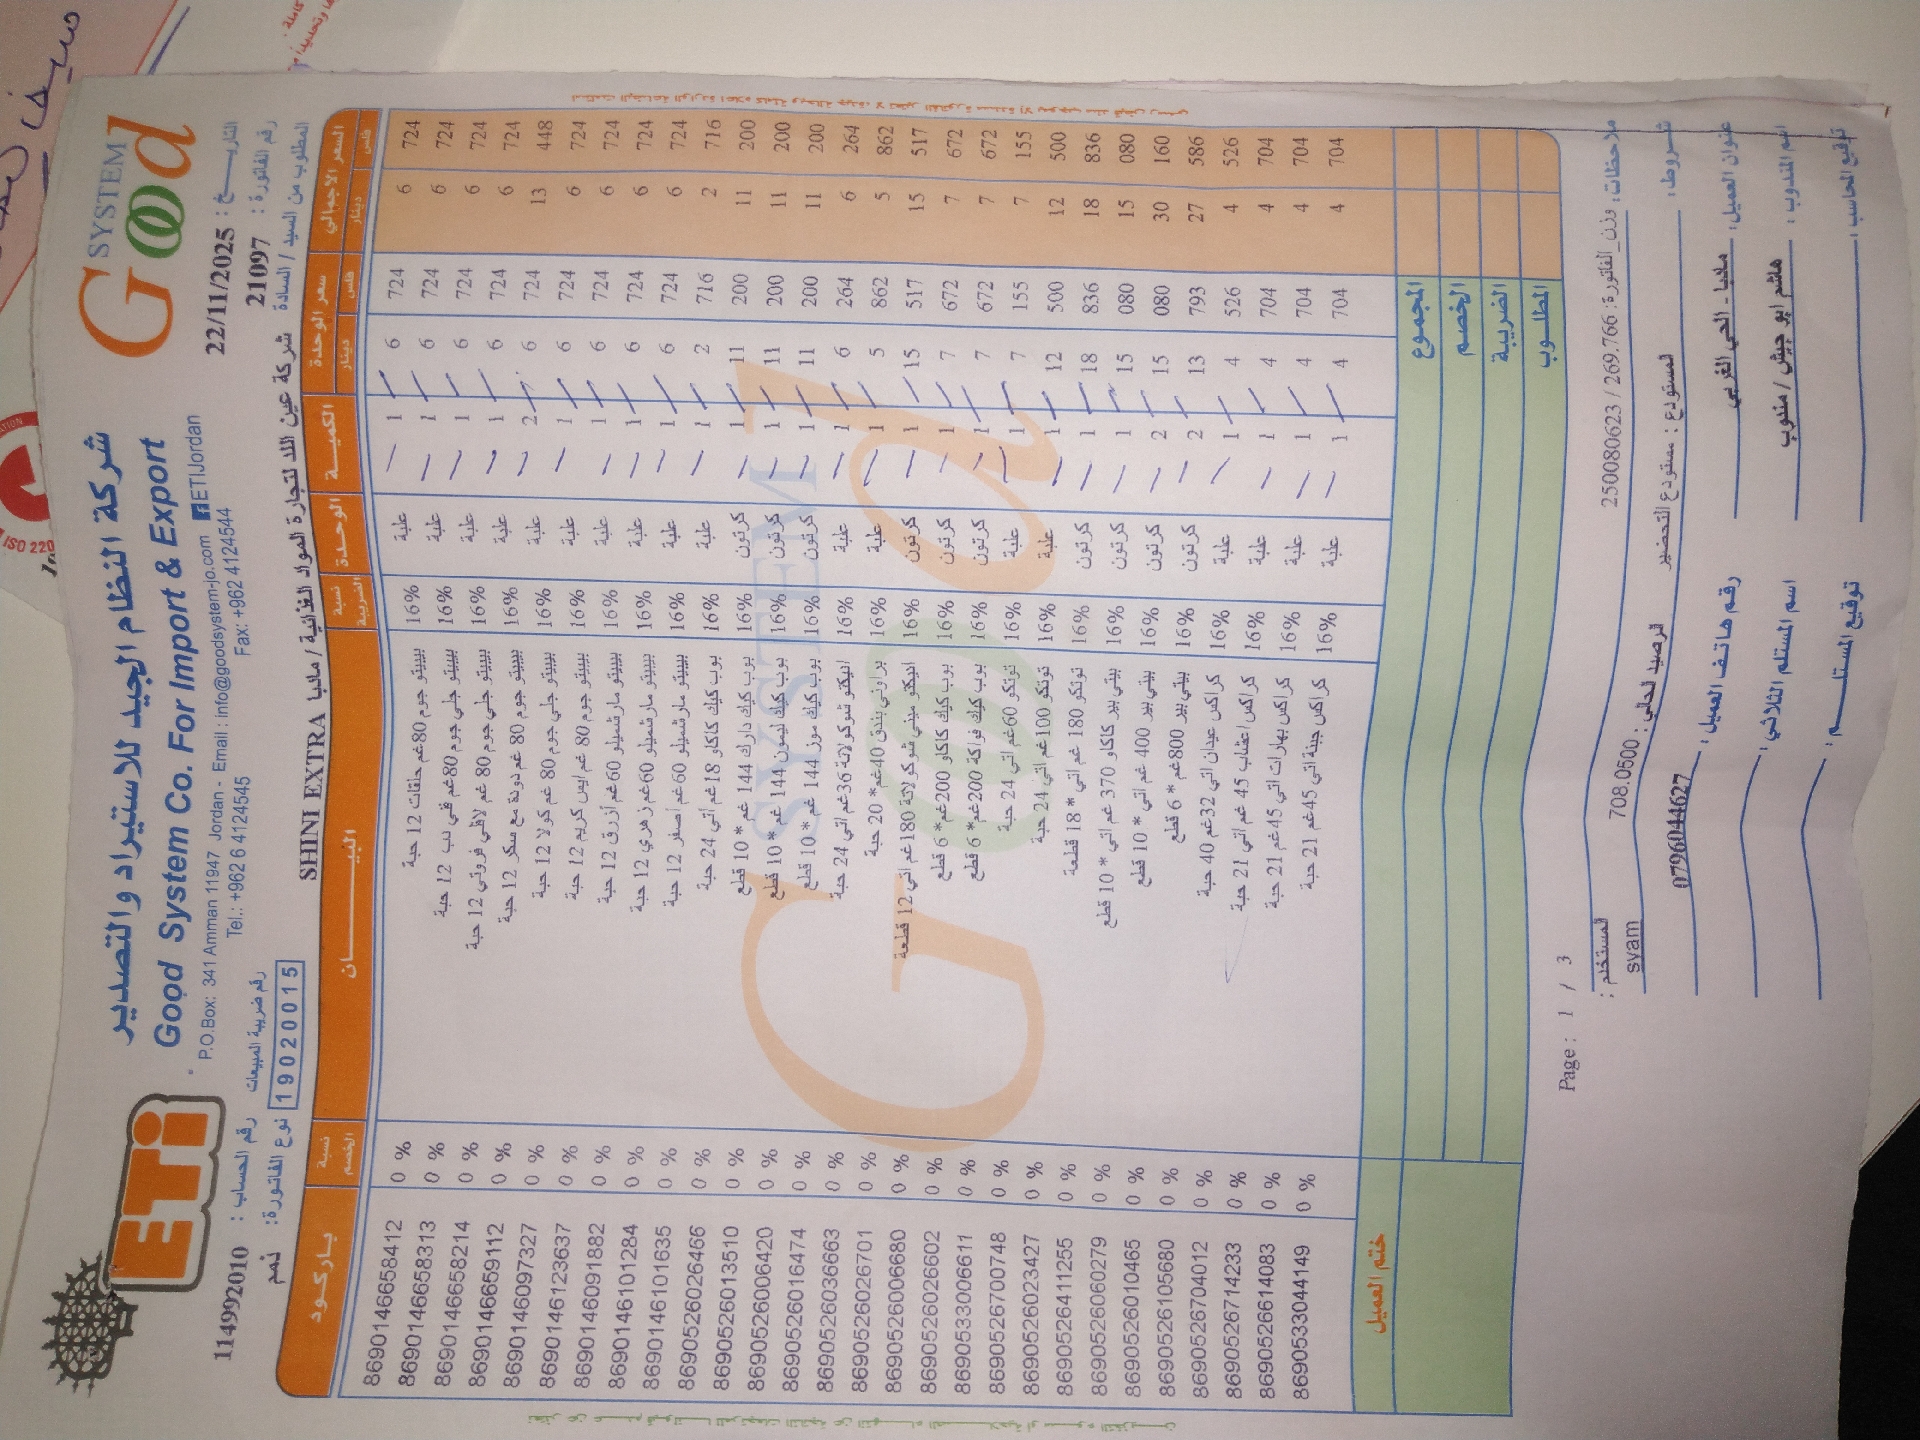 شركة النظام الجيد للاستيراد والتصدير
Good System Co. For Import & Export
P.O.Box: 341 Amman 11947 Jordan - Email : info@goodsystem-jo.com ETIJordan
Tel.: +962 6 4124545 Fax: +962 6 4124544
ETi
SYSTEM
Good
التاريـــخ : 22/11/2025
رقم الفاتورة : 21097
المطلوب من السيد / السادة شركة عين اللا لتجارة المواد الغذائية / مادبا SHINI EXTRA
رقم الحساب : 1149992010
رقم ضريبة المبيعات
19020015
نوع الفاتورة: ذمم
باركود نسبة الخصم البيـــــان نسبة الضريبة الوحدة الكميـــة سعر الوحدة دينار فلس السعر الاجمالي دينار فلس
8690146658412 0 % بيبيتو جوم 80غم حلقات 12 حبة 16% علبة 1 6 724 6 724
8690146658313 0 % بيبيتو جلي جوم 80غم فني دب 12 حبة 16% علبة 1 6 724 6 724
8690146658214 0 % بيبيتو جلي جوم 80 غم لافلي فروتي 12 حبة 16% علبة 1 6 724 6 724
8690146659112 0 % بيبيتو جوم 80 غم دودة مع سكر 12 حبة 16% علبة 1 6 724 6 724
8690146097327 0 % بيبيتو جلي جوم 80 غم كولا 12 حبة 16% علبة 2 6 724 13 448
8690146123637 0 % بيبيتو جوم 80 غم ايس كريم 12 حبة 16% علبة 1 6 724 6 724
8690146091882 0 % بيبيتو مارشميلو 60غم أزرق 12 حبة 16% علبة 1 6 724 6 724
8690146101284 0 % بيبيتو مارشميلو 60غم زهري 12 حبة 16% علبة 1 6 724 6 724
8690146101635 0 % بيبيتو مارشميلو 60غم أصفر 12 حبة 16% علبة 1 6 724 6 724
8690526026466 0 % بوب كيك كاكاو 18غم أتي 24 حبة 16% علبة 1 2 716 2 716
8690526013510 0 % بوب كيك دارك 144 غم * 10 قطع 16% كرتون 1 11 200 11 200
8690526006420 0 % بوب كيك ليمون 144 غم * 10 قطع 16% كرتون 1 11 200 11 200
8690526016474 0 % بوب كيك موز 144 غم * 10 قطع 16% كرتون 1 11 200 11 200
8690526036663 0 % اديكتو شوكولاتة 36غم اتي 24 حبة 16% علبة 1 6 264 6 264
8690526026701 0 % براوني بندق 40غم* 20 حبة 16% علبة 1 5 862 5 862
8690526006680 0 % اديكتو ميني شوكولاتة 180غم اتي 12 قطعة 16% كرتون 1 15 517 15 517
8690526026602 0 % بوب كيك كاكاو 200غم* 6 قطع 16% كرتون 1 7 672 7 672
8690533006611 0 % بوب كيك فواكة 200غم* 6 قطع 16% كرتون 1 7 672 7 672
8690526700748 0 % توتكو 60غم اتي 24 حبة 16% علبة 1 7 155 7 155
8690526023427 0 % توتكو 100غم اتي 24 حبة 16% علبة 1 12 500 12 500
8690526411255 0 % توتكو 180 غم اتي * 18 قطعة 16% كرتون 1 18 836 18 836
8690526060279 0 % بيتي بير كاكاو 370 غم اتي * 10 قطع 16% كرتون 1 15 080 15 080
8690526010465 0 % بيتي بير 400 غم اتي * 10 قطع 16% كرتون 2 15 080 30 160
8690526105680 0 % بيتي بير 800غم * 6 قطع 16% كرتون 2 13 793 27 586
8690526704012 0 % كراكس عيدان اتي 32غم 40 حبة 16% علبة 1 4 526 4 526
8690526714233 0 % كراكس اعشاب 45 غم اتي 21 حبة 16% علبة 1 4 704 4 704
8690526614083 0 % كراكس بهارات اتي 45غم 21 حبة 16% علبة 1 4 704 4 704
8690533044149 0 % كراكس جبنة اتي 45غم 21 حبة 16% علبة 1 4 704 4 704
ختم العميل المجموع
الخصم
الضريبة
المطلـــوب
Page : 1 / 3
ملاحظات : وزن_الفاتورة: 269.766 / 250080623
المستخدم : syam
شروط :
المستودع : مستودع التحضير
الرصيد الحالي : 708.0500
عنوان العميل: مادبا - الحي الغربي
رقم هاتف العميل : 0796044627
اسم المندوب : هاشم ابو جيش / مندوب
اسم المستلم الثلاثي :
توقيع المحاسب :
توقيع المستلـــم :
ISO 220